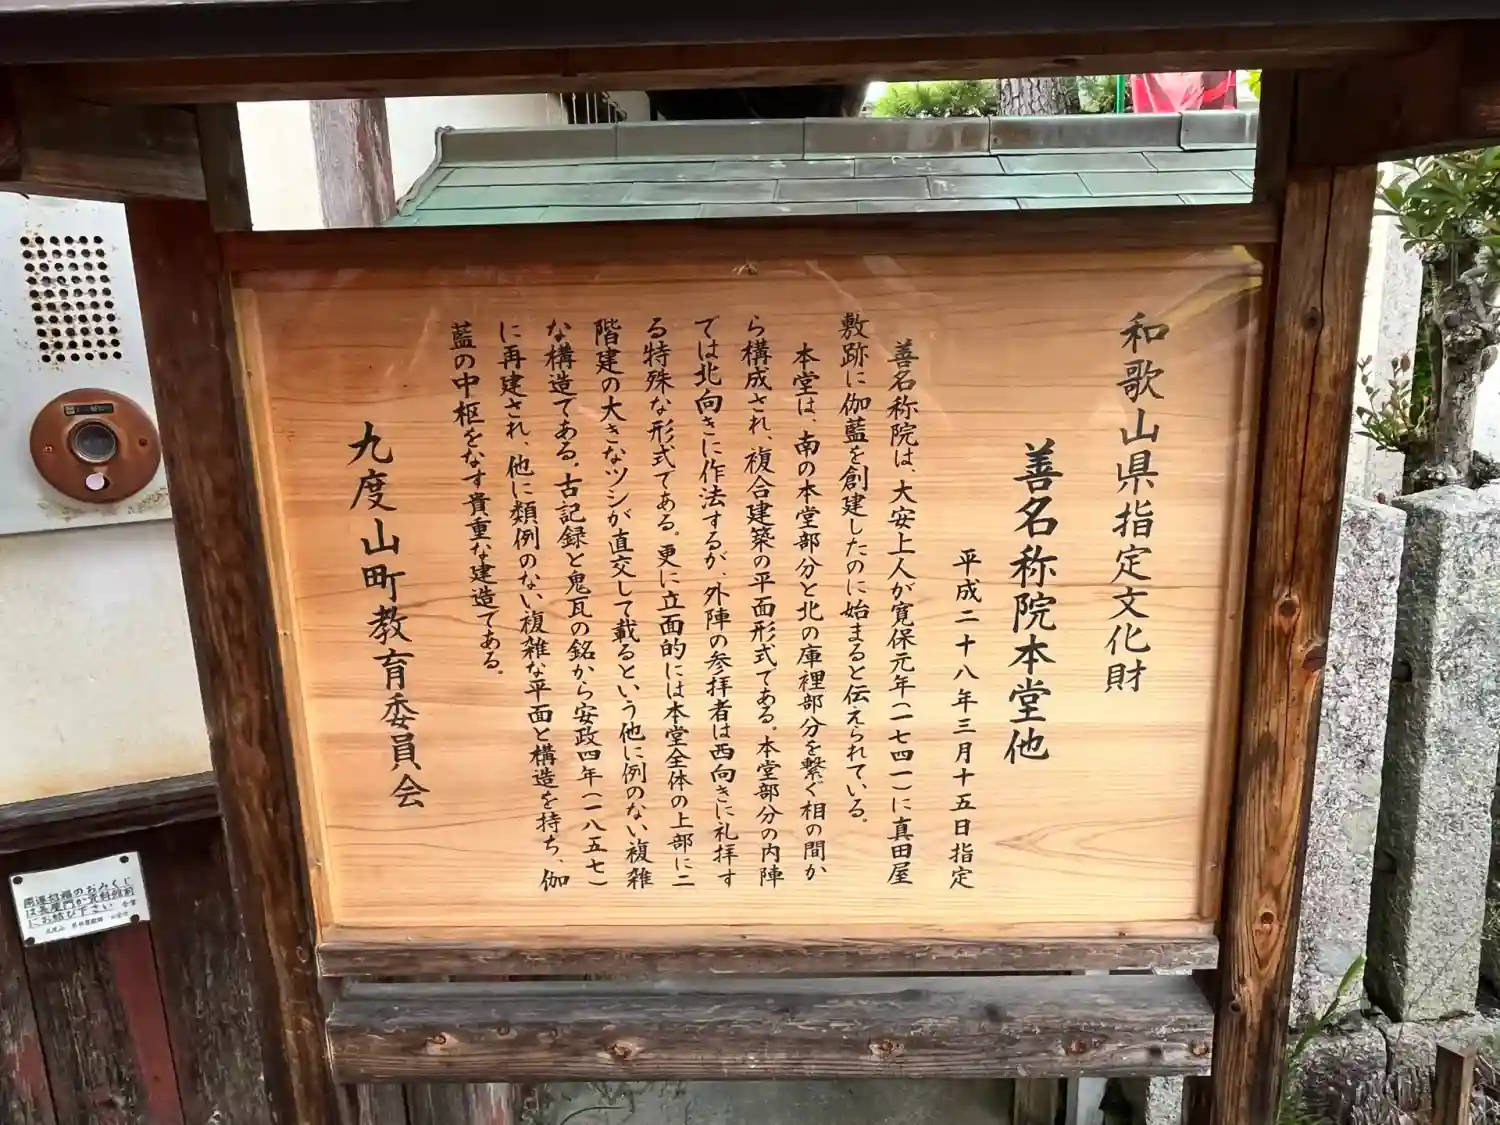 和歌山県指定文化財
善名称院本堂他
平成二十八年三月十五日指定
善名称院は、大安上人が寛保元年(一七四一)に真田屋
敷跡に伽藍を創建したのに始まると伝えられている。
本堂は、南の本堂部分と北の庫裡部分を繋ぐ相の間か
ら構成され、複合建築の平面形式である。本堂部分の内陣
では北向きに作法するが、外陣の参拝者は西向きに礼拝す
る特殊な形式である。更に立面的には本堂全体の上部に二
階建の大きなツシが直交して載るという他に例のない複雑
な構造である。古記録と鬼瓦の銘から安政四年(一八五七)
に再建され、他に類例のない複雑な平面と構造を持ち、伽
藍の中枢をなす貴重な建造である。
九度山町教育委員会
開運招福のおみくじ
は長屋門か資料館前
にお結び下さい